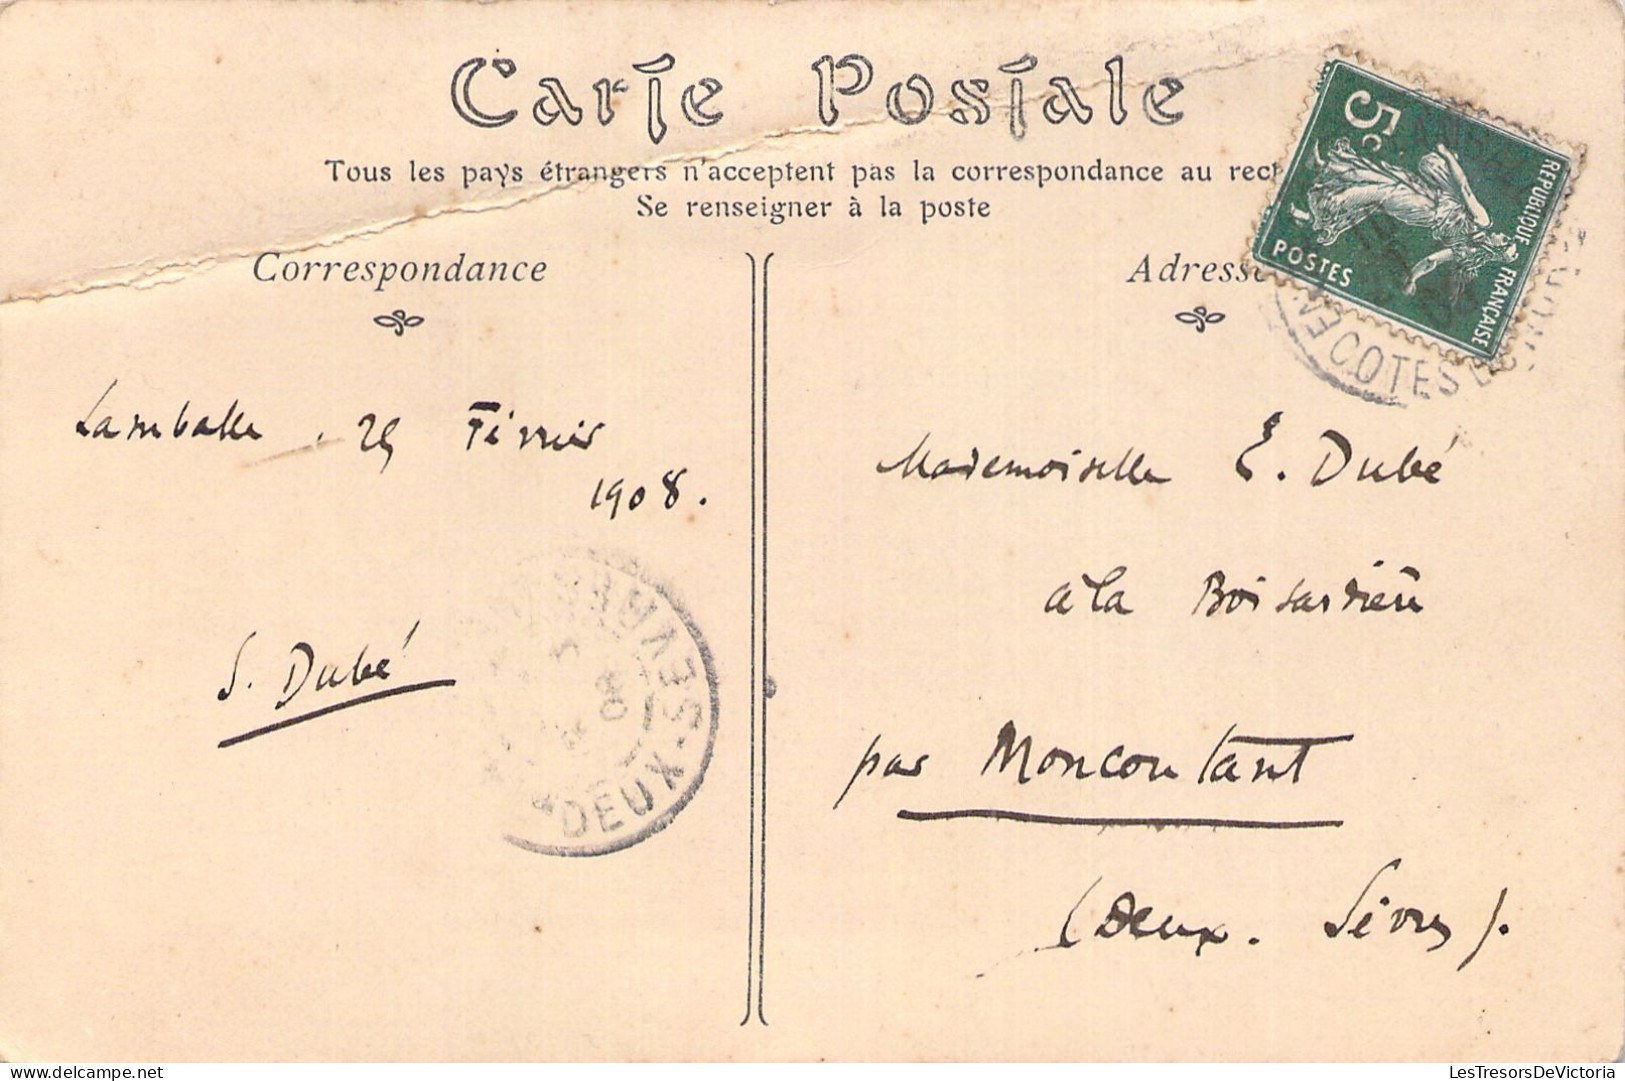 Carte Postale
Tous les pays étrangers n'acceptent pas la correspondance au rect
Se renseigner à la poste
Correspondance
Adresse
5c
POSTES
REPUBLIQUE FRANÇAISE
COTES DU NORD
Lamballe. 25 Février
1908.
S. Dubé
DEUX-SEVRES
08
Mademoiselle E. Dubé
à la Boisardière
par Moncoutant
(Deux. Sèvres).
LesTresorsDeVictoria